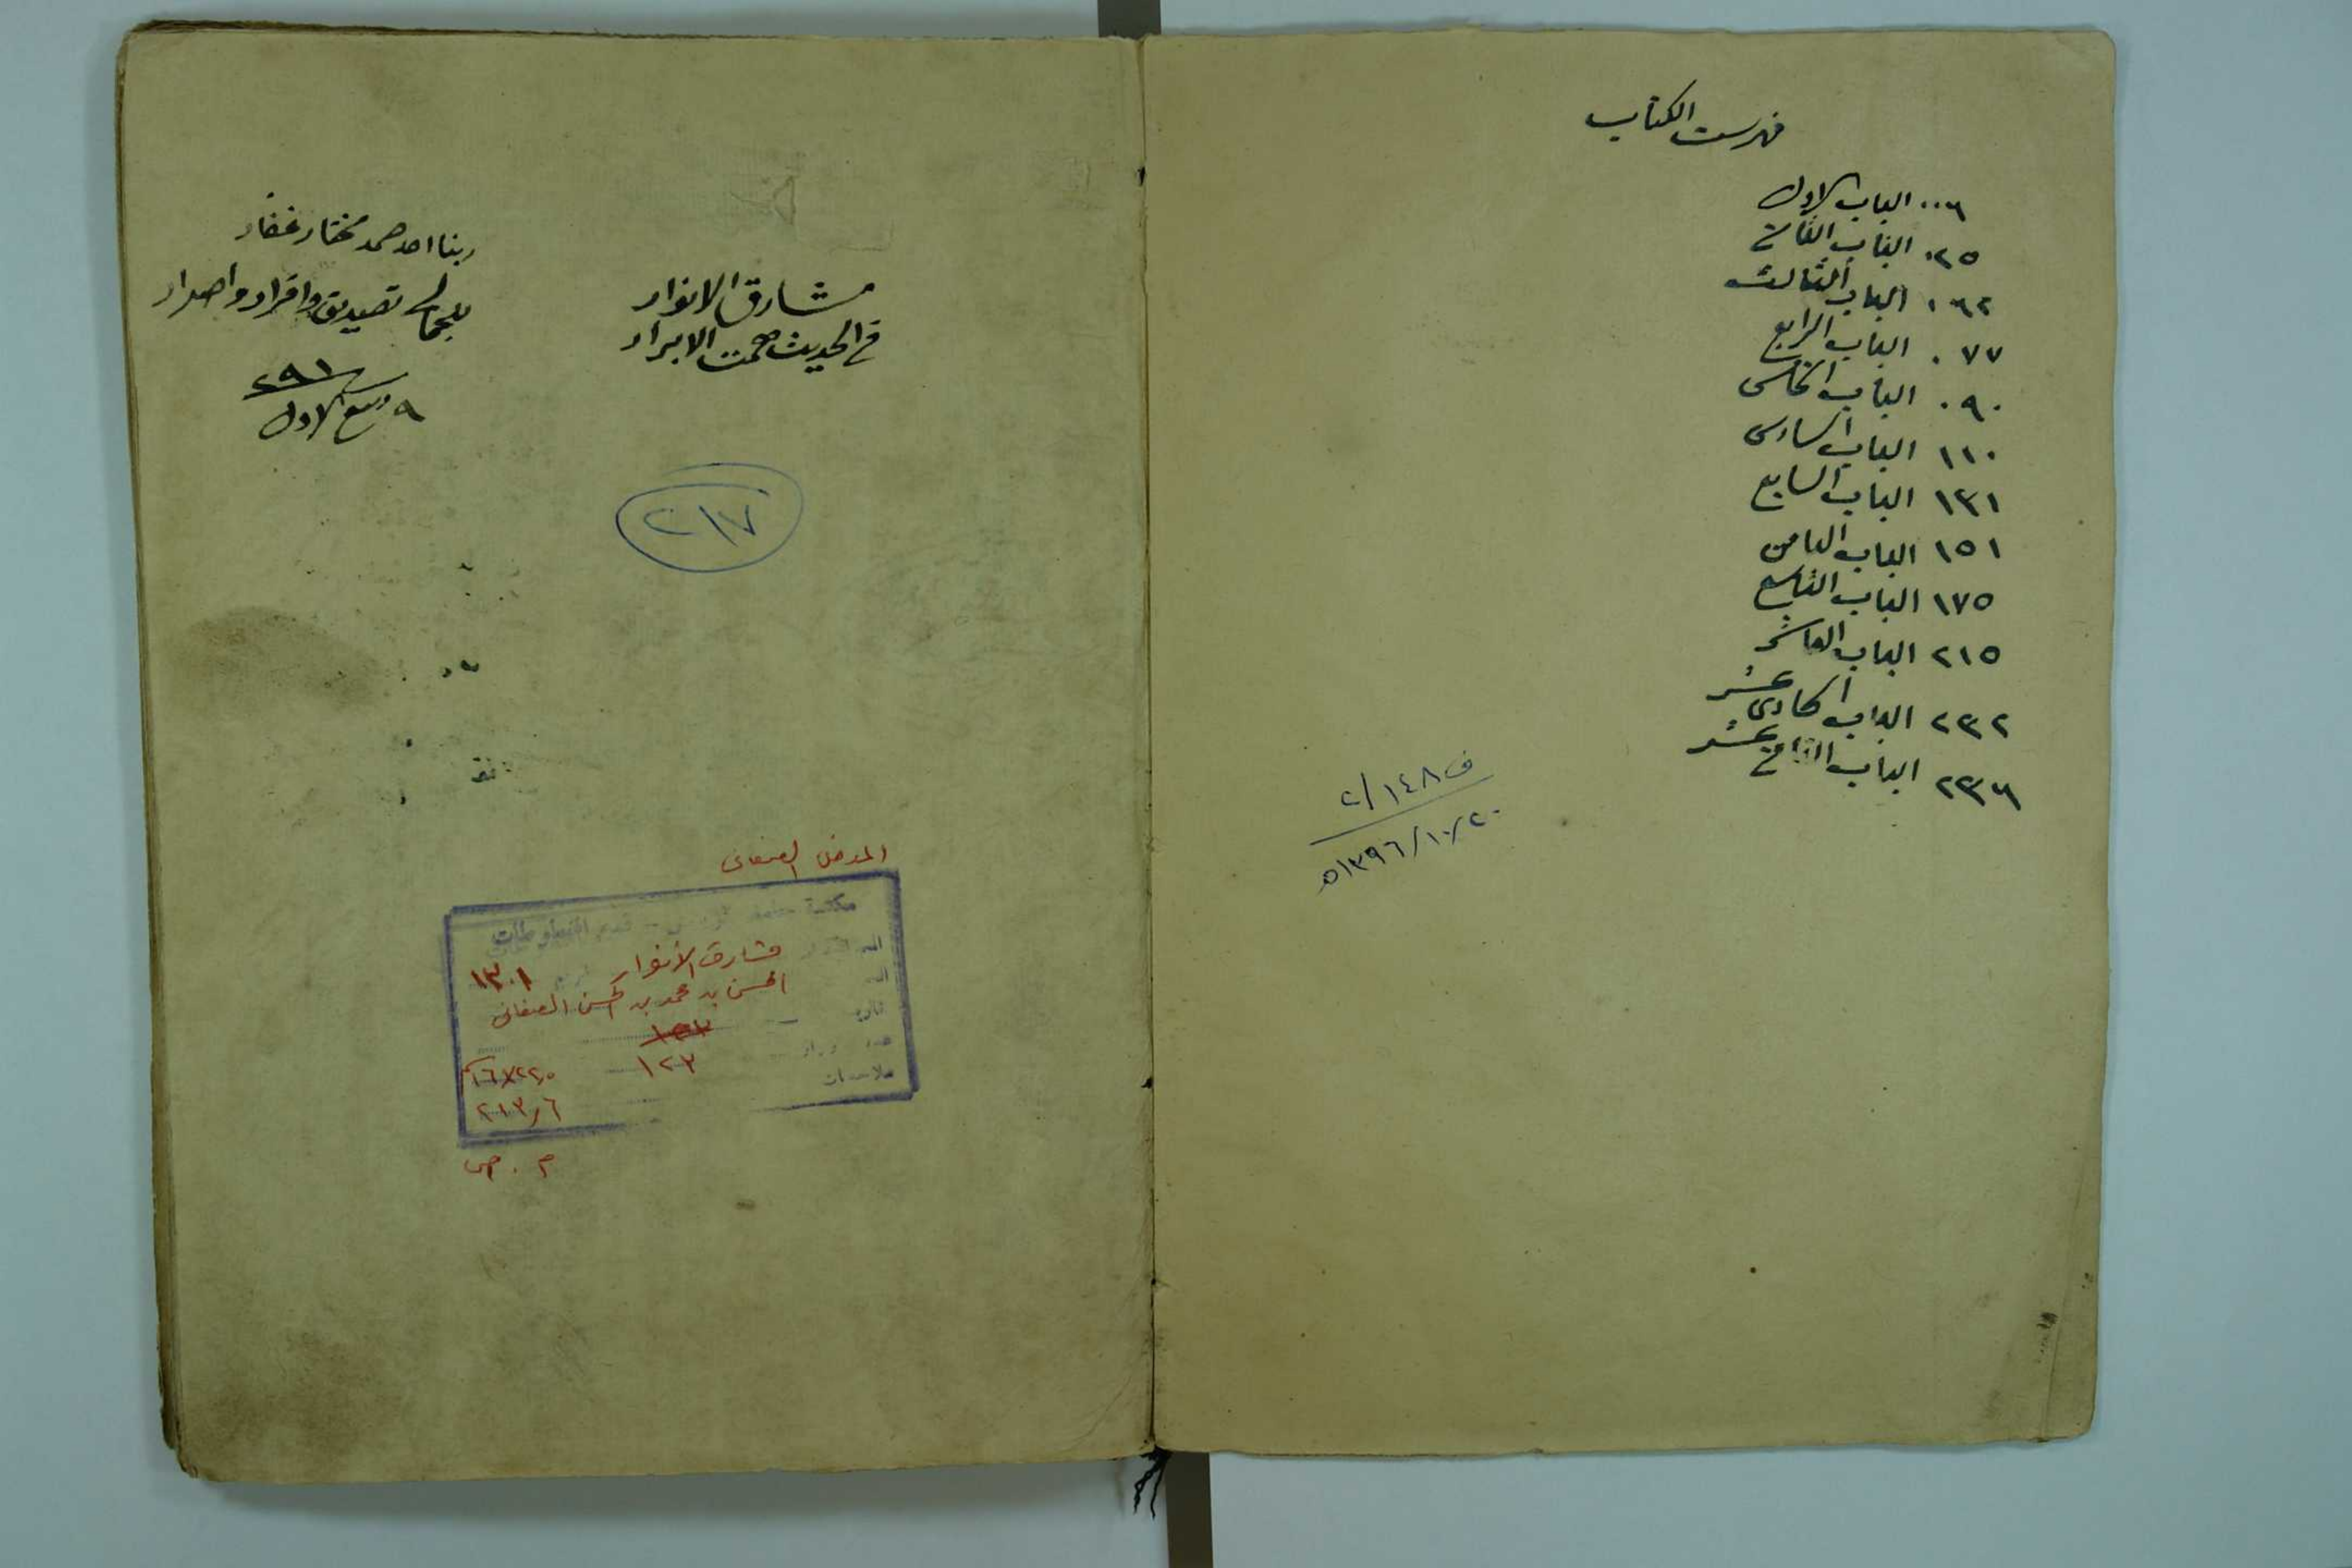 فهرست الكتاب
٠٠٦ الباب الاول
٠٢٥ الباب الثاني
٠٦٢ الباب الثالث
٠٧٧ الباب الرابع
٠٩٠ الباب الخامس
١١٠ الباب السادس
١٣١ الباب السابع
١٥١ الباب الثامن
١٧٥ الباب التاسع
٢١٥ الباب العاشر
٢٣٢ الباب الحادى عشر
٢٣٦ الباب الثاني عشر
ف ١٤٨/٢
١٣٩٦/١٠/٢٠ه
مشارق الانوار
في الحديث همت الابرار
ربنا احد صمد مختار غفار
تصديق واقرار واصرار
٢٩١
٩ ربيع الاول
٢١٧
مكتبة قسم المخطوطات
مشارق الأنوار ١٣٠١
الحسن بن محمد بن الحسن الصغاني
١٢٣
١٦×٢٢,٥ سم
٢١٣/٦
م . ص